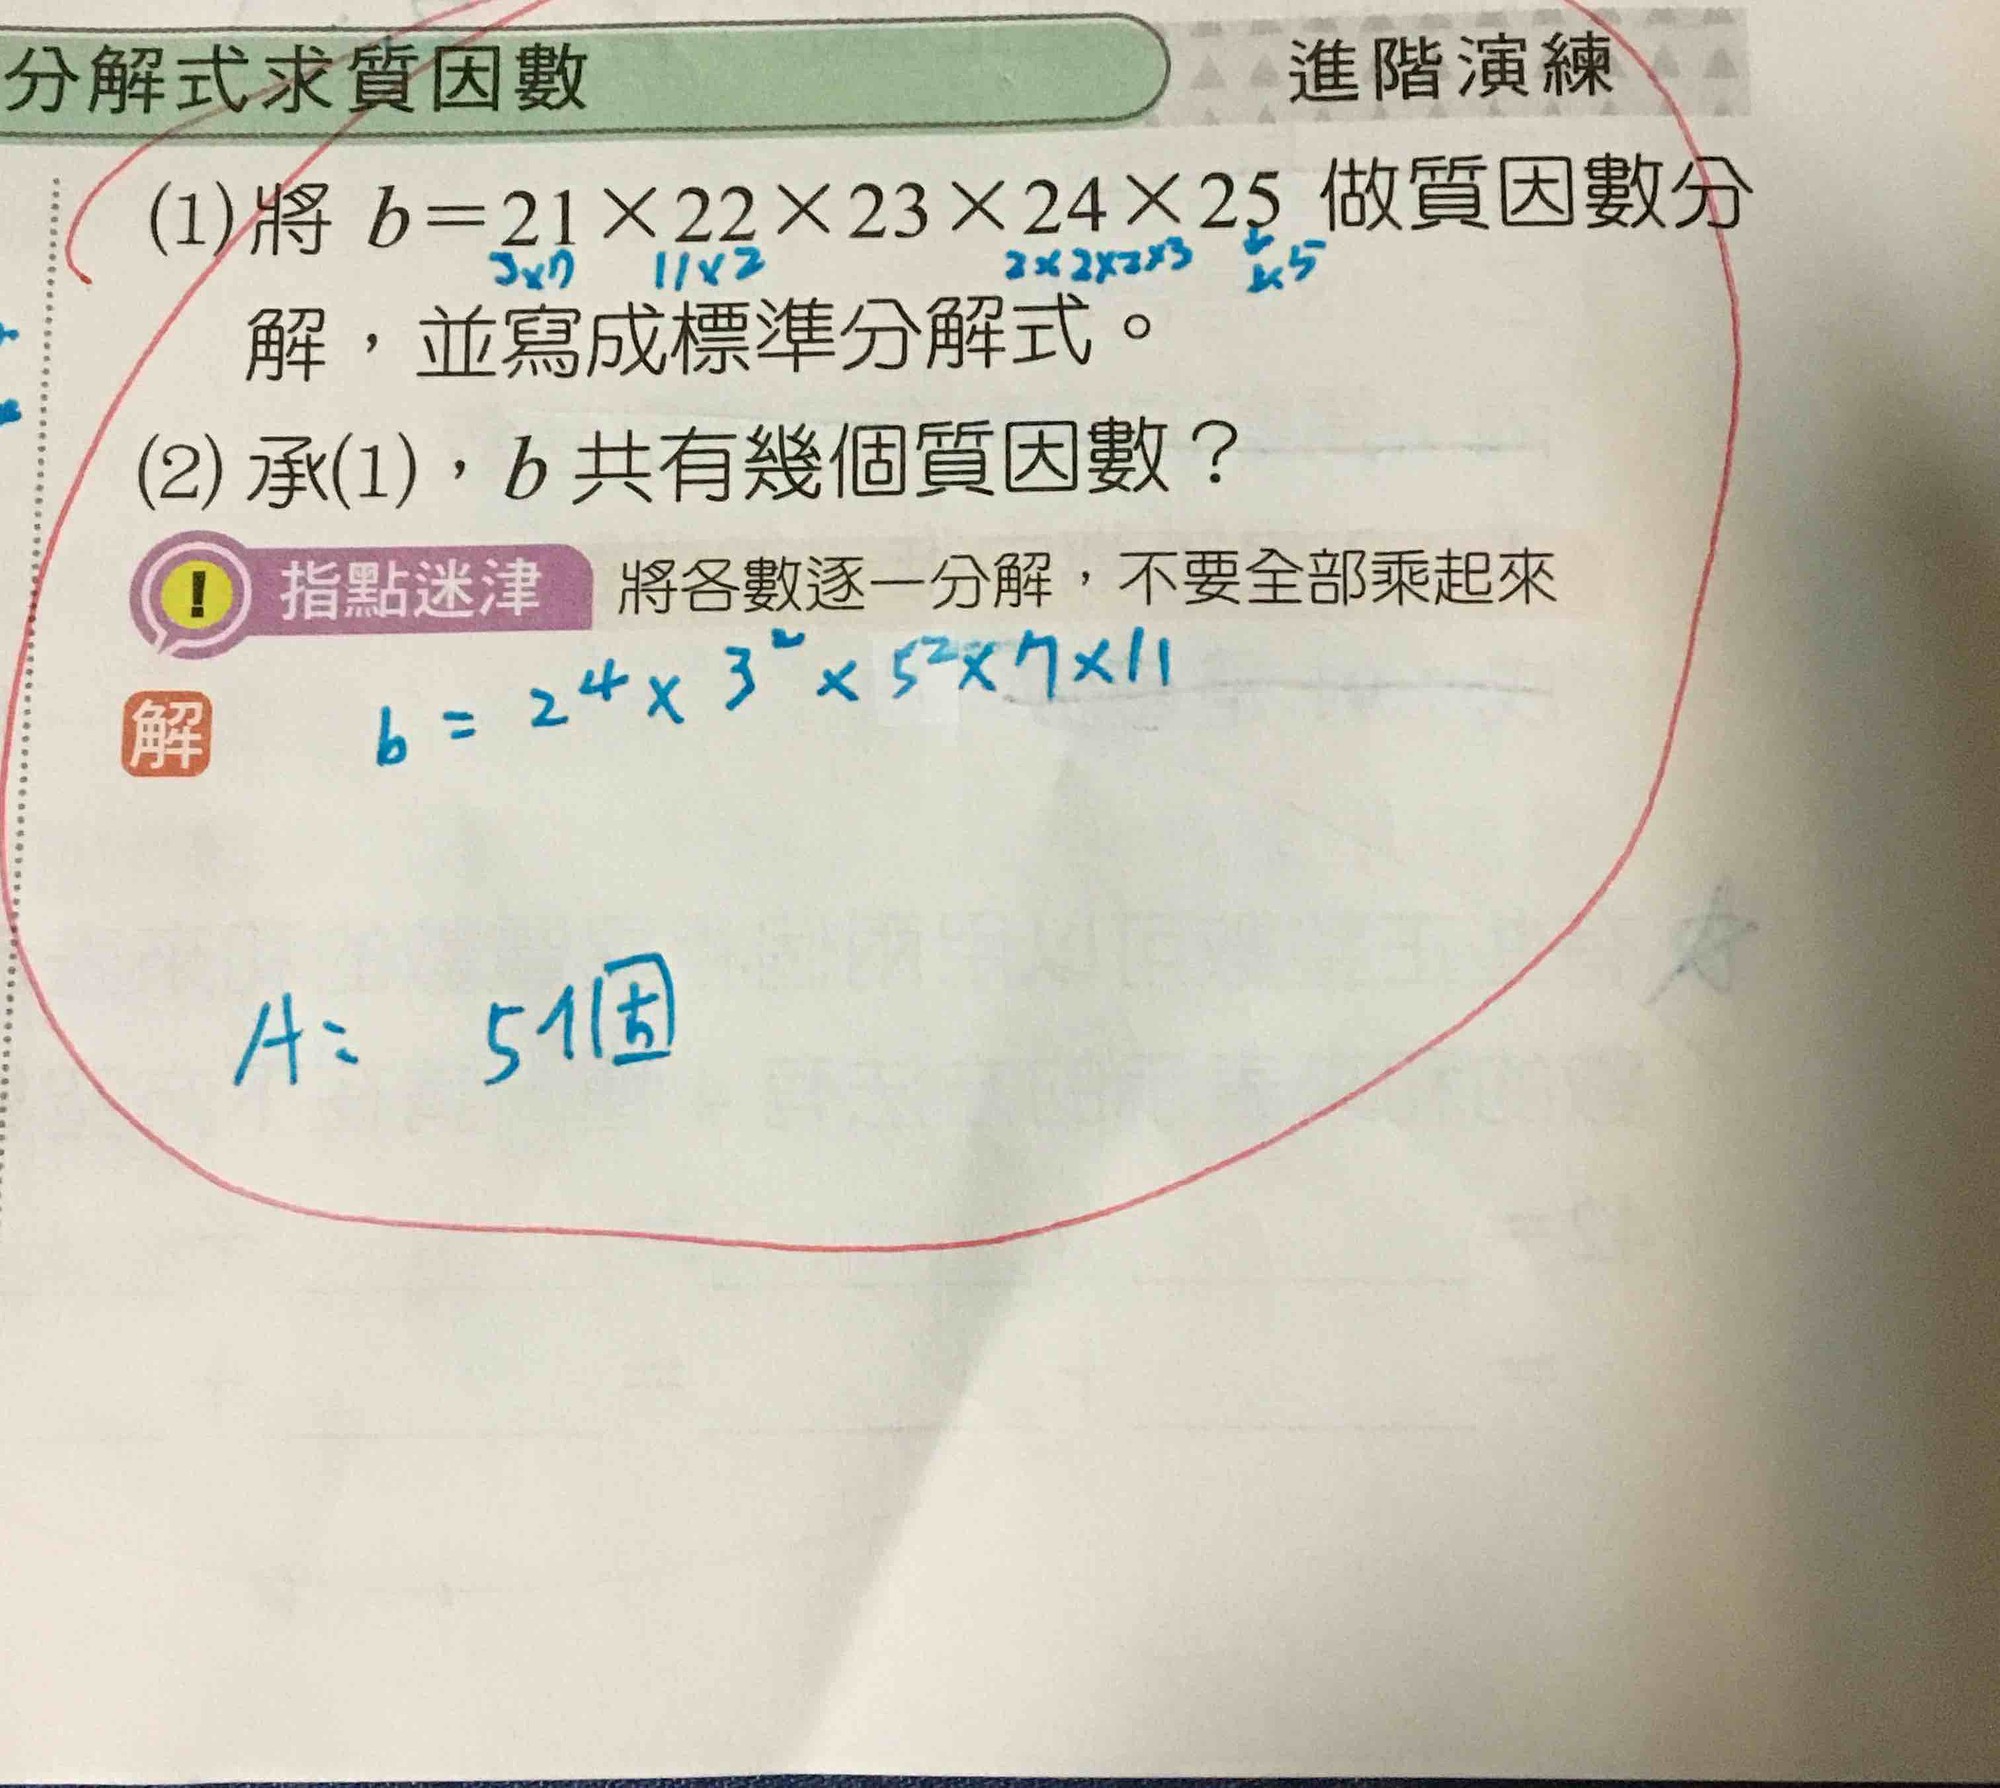 分解式求質因數 進階演練
(1)將 b=21×22×23×24×25 做質因數分
3×7 11×2 2×2×2×3 ×5
解，並寫成標準分解式。
(2)承(1)，b 共有幾個質因數？
! 指點迷津 將各數逐一分解，不要全部乘起來
解 b = 2⁴ × 3² × 5² × 7 × 11
A: 5個